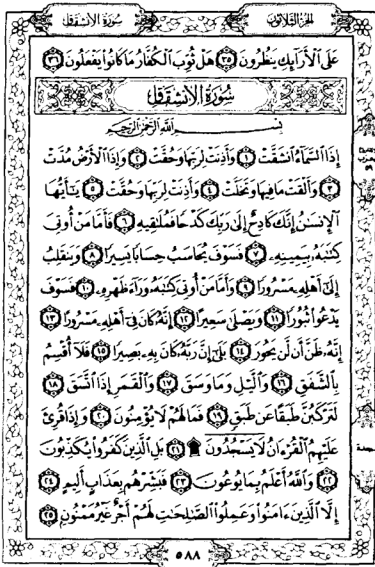 الجزء الثلاثون
سورة الانشقاق
عَلَى ٱلْأَرَآئِكِ يَنظُرُونَ ٣٥ هَلْ ثُوِّبَ ٱلْكُفَّارُ مَا كَانُوا۟ يَفْعَلُونَ ٣٦
سُورَةُ الانشِقَاقِ
بِسْمِ ٱللَّهِ ٱلرَّحْمَٰنِ ٱلرَّحِيمِ
إِذَا ٱلسَّمَآءُ ٱنشَقَّتْ ١ وَأَذِنَتْ لِرَبِّهَا وَحُقَّتْ ٢ وَإِذَا ٱلْأَرْضُ مُدَّتْ
٣ وَأَلْقَتْ مَا فِيهَا وَتَخَلَّتْ ٤ وَأَذِنَتْ لِرَبِّهَا وَحُقَّتْ ٥ يَٰٓأَيُّهَا
ٱلْإِنسَٰنُ إِنَّكَ كَادِحٌ إِلَىٰ رَبِّكَ كَدْحًا فَمُلَٰقِيهِ ٦ فَأَمَّا مَنْ أُوتِىَ
كِتَٰبَهُۥ بِيَمِينِهِۦ ٧ فَسَوْفَ يُحَاسَبُ حِسَابًا يَسِيرًا ٨ وَيَنقَلِبُ
إِلَىٰٓ أَهْلِهِۦ مَسْرُورًا ٩ وَأَمَّا مَنْ أُوتِىَ كِتَٰبَهُۥ وَرَآءَ ظَهْرِهِۦ ١٠ فَسَوْفَ
يَدْعُوا۟ ثُبُورًا ١١ وَيَصْلَىٰ سَعِيرًا ١٢ إِنَّهُۥ كَانَ فِىٓ أَهْلِهِۦ مَسْرُورًا ١٣
إِنَّهُۥ ظَنَّ أَن لَّن يَحُورَ ١٤ بَلَىٰٓ إِنَّ رَبَّهُۥ كَانَ بِهِۦ بَصِيرًا ١٥ فَلَآ أُقْسِمُ
بِٱلشَّفَقِ ١٦ وَٱلَّيْلِ وَمَا وَسَقَ ١٧ وَٱلْقَمَرِ إِذَا ٱتَّسَقَ ١٨
لَتَرْكَبُنَّ طَبَقًا عَن طَبَقٍ ١٩ فَمَا لَهُمْ لَا يُؤْمِنُونَ ٢٠ وَإِذَا قُرِئَ
عَلَيْهِمُ ٱلْقُرْءَانُ لَا يَسْجُدُونَ ۩ ٢١ بَلِ ٱلَّذِينَ كَفَرُوا۟ يُكَذِّبُونَ
٢٢ وَٱللَّهُ أَعْلَمُ بِمَا يُوعُونَ ٢٣ فَبَشِّرْهُم بِعَذَابٍ أَلِيمٍ ٢٤
إِلَّا ٱلَّذِينَ ءَامَنُوا۟ وَعَمِلُوا۟ ٱلصَّٰلِحَٰتِ لَهُمْ أَجْرٌ غَيْرُ مَمْنُونٍ ٢٥
٥٨٨